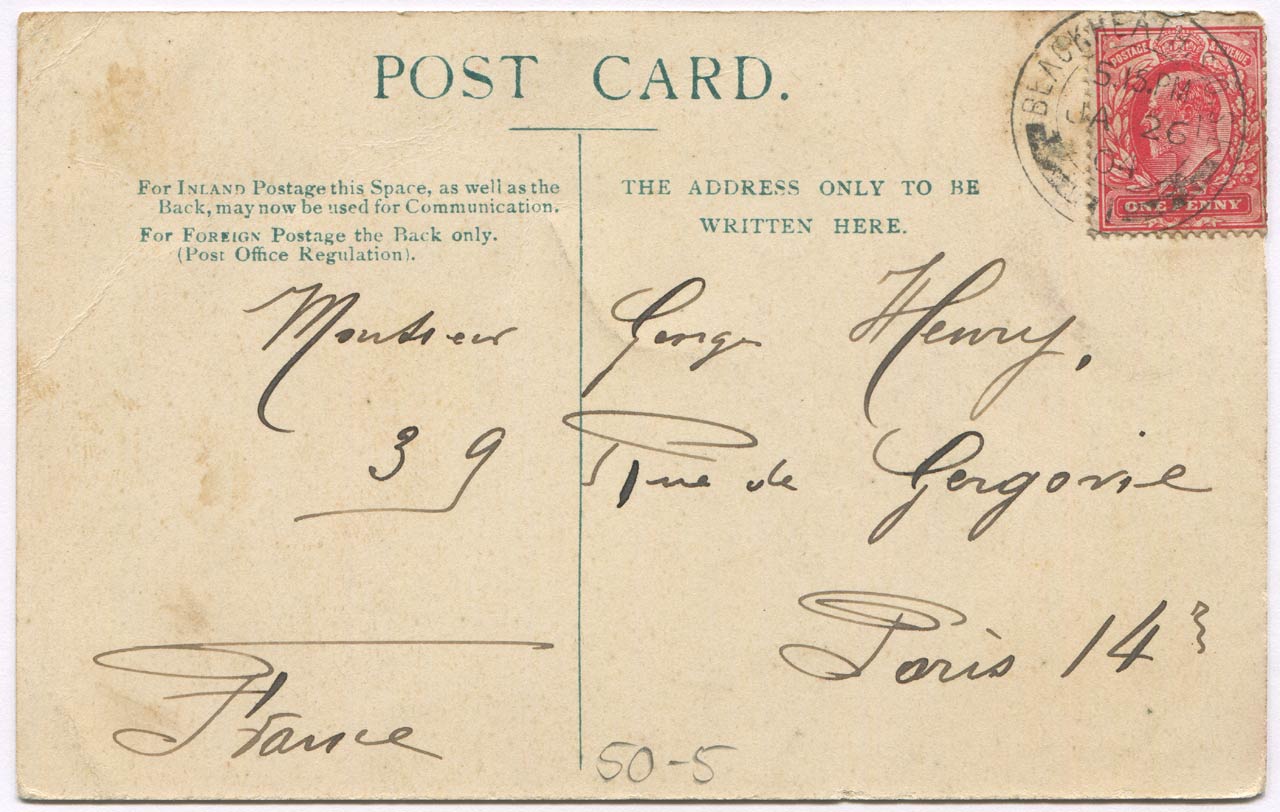 POST CARD.
BLACKHEATH
5.15 PM
JA 26
POSTAGE & REVENUE
ONE PENNY
For INLAND Postage this Space, as well as the
Back, may now be used for Communication.
For FOREIGN Postage the Back only.
(Post Office Regulation).
THE ADDRESS ONLY TO BE
WRITTEN HERE.
Monsieur George Henry,
39 Rue de Gergovie
Paris 14e
France
50-5